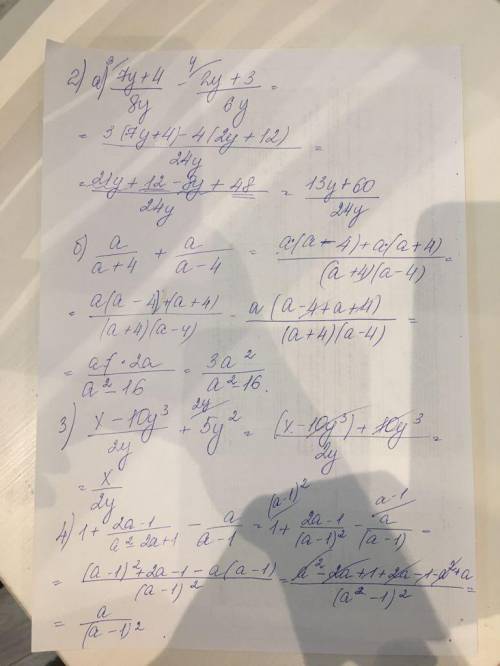 2) а) ³⁄ (7y+4)/(8y) - ⁴⁄ (2y+3)/(6y) =
= (3(7y+4)-4(2y+12))/(24y) =
= (21y+12-8y+48)/(24y) = (13y+60)/(24y)
б) a/(a+4) + a/(a-4) = (a·(a-4)+a·(a+4))/((a+4)(a-4)) =
= (a(a-4)+(a+4))/((a+4)(a-4)) = (a(a-4+a+4))/((a+4)(a-4)) =
= (a·2a)/(a²-16) = (3a²)/(a²-16).
3) (x-10y³)/(2y) + 2y⁄ 5y² = ((x-10y³)+10y³)/(2y) =
= x/(2y)
4) 1+ (2a-1)/(a²-2a+1) - a/(a-1) = (a-1)²⁄ 1+ (2a-1)/(a-1)² - a-1⁄ a/(a-1) =
= ((a-1)²+2a-1-a(a-1))/(a-1)² = (a²-2a+1+2a-1-a²+a)/(a²-1)² =
= a/(a-1)².